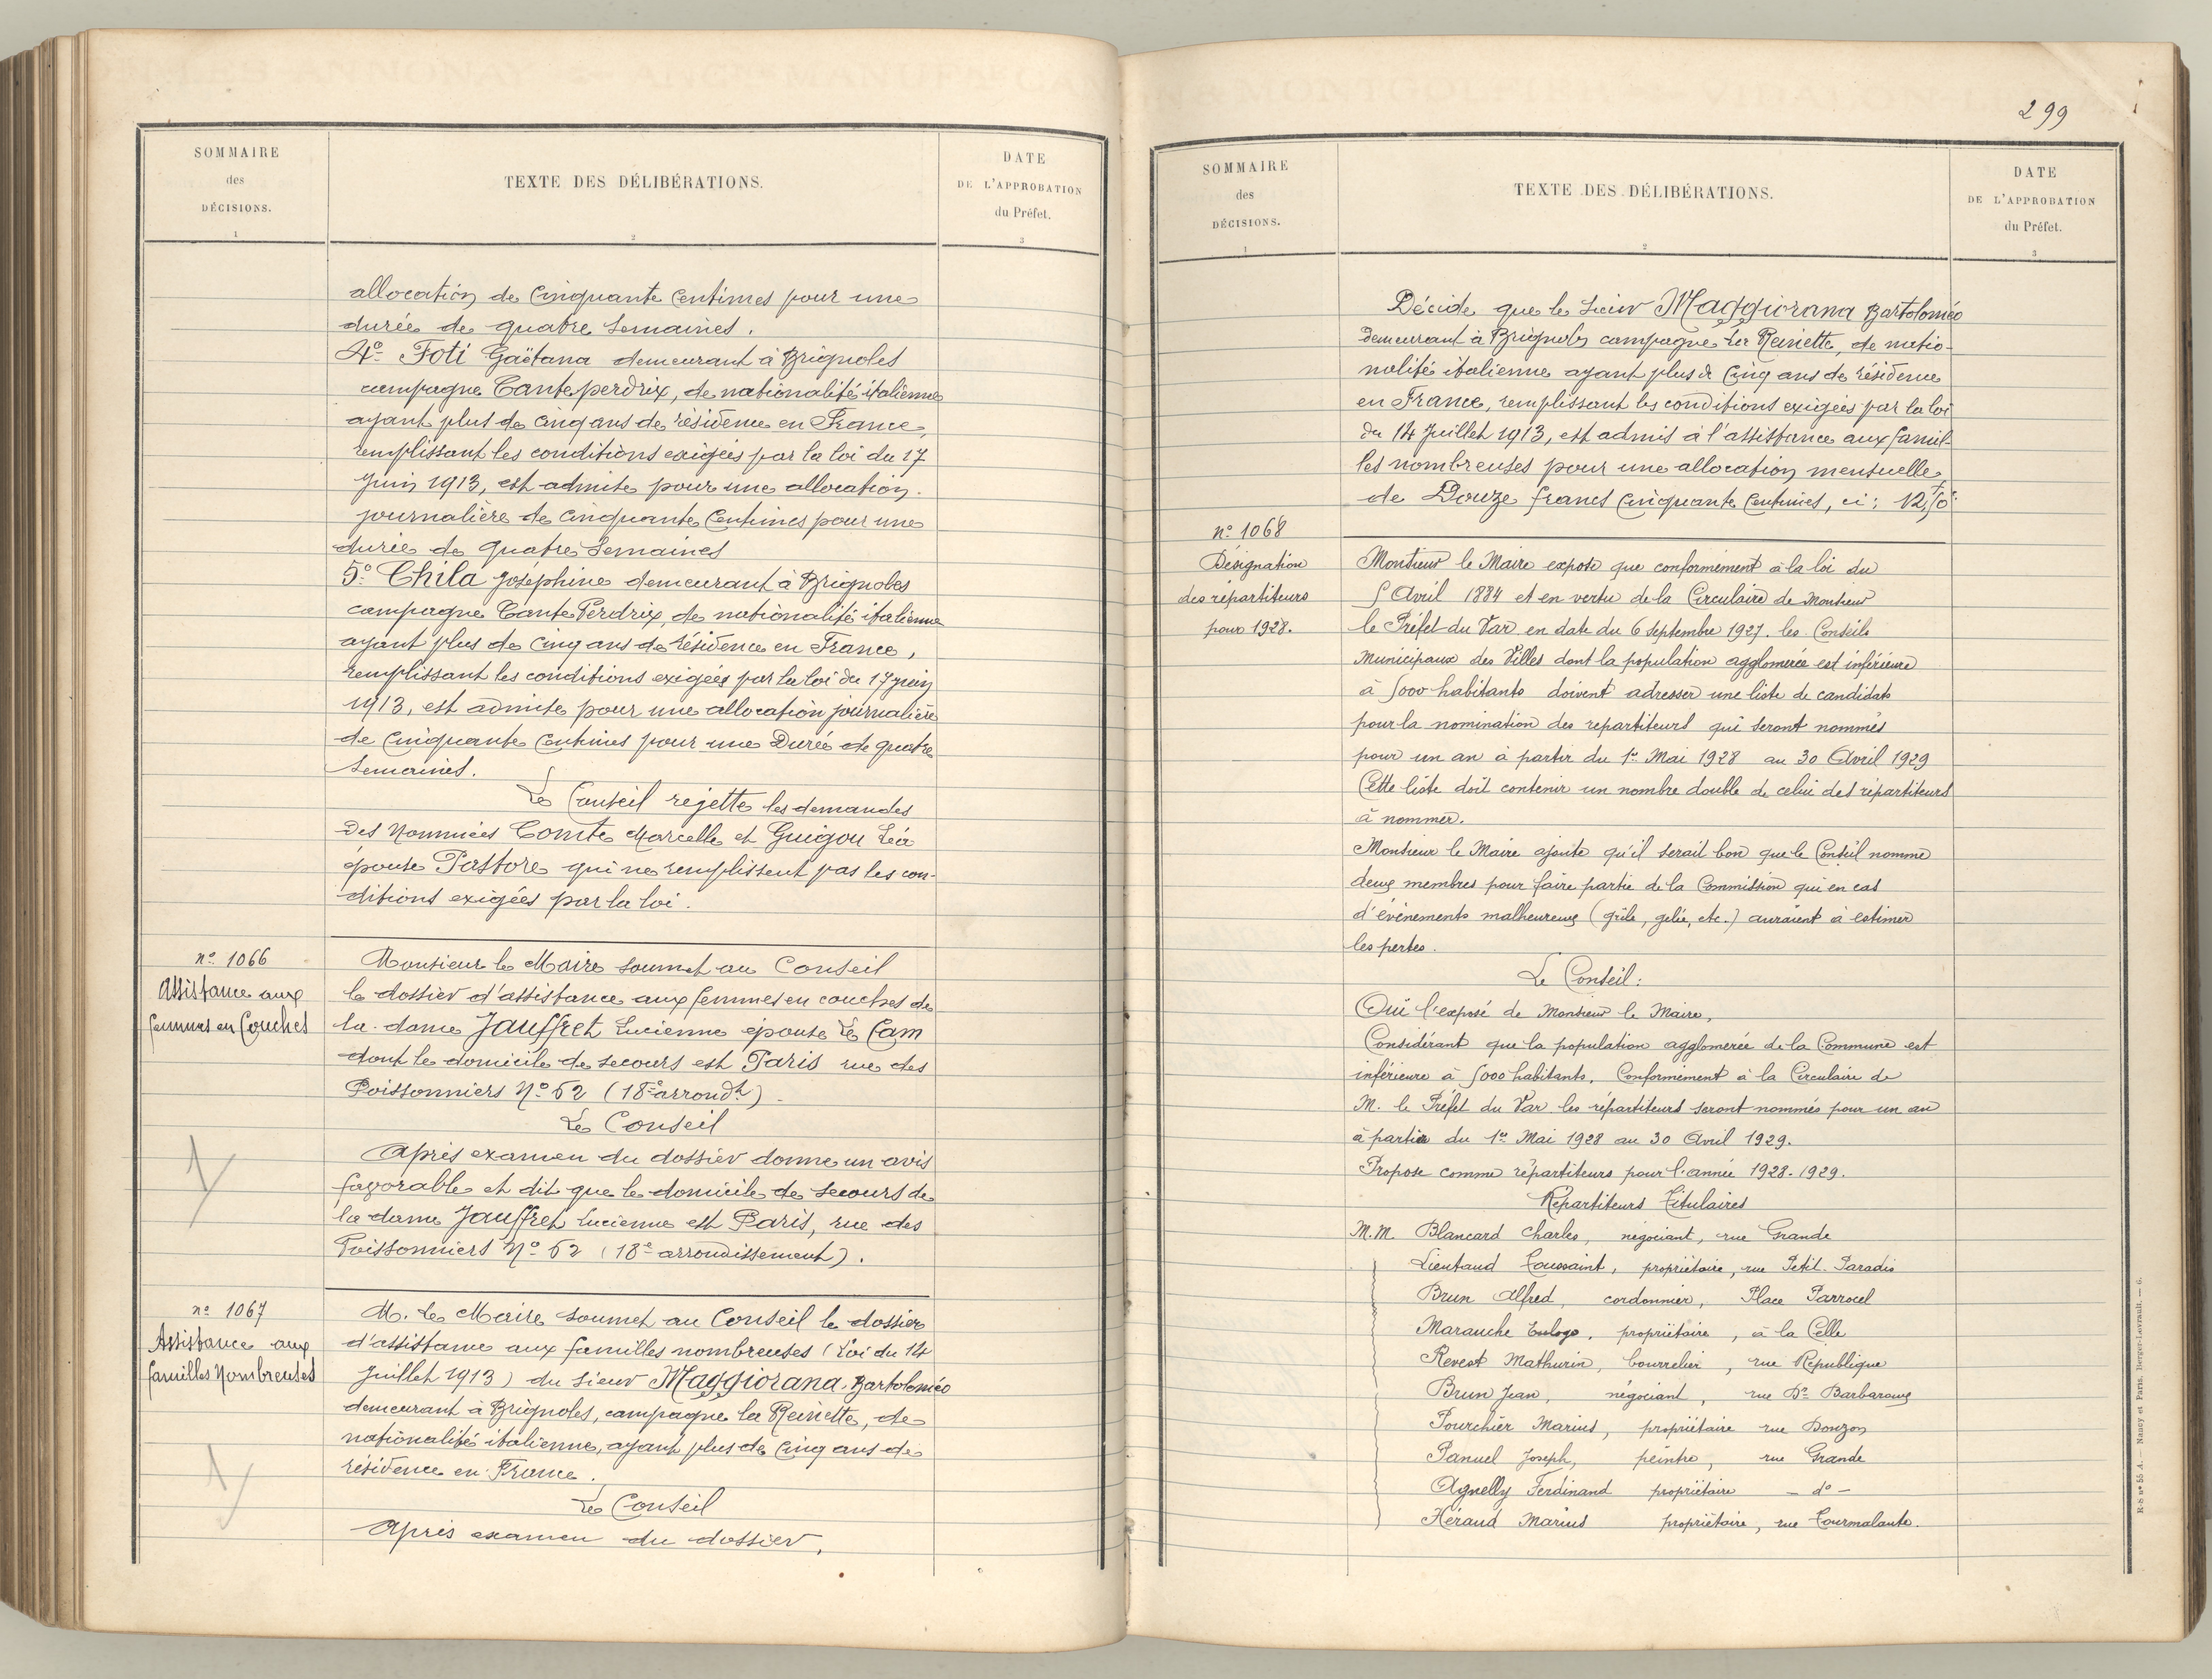 SOMMAIRE
des
DÉCISIONS.
1
TEXTE DES DÉLIBÉRATIONS.
2
DATE
DE L'APPROBATION
du Préfet.
3
allocation de Cinquante Centimes pour une
durée de quatre Semaines.
4º Foti Gaëtana demeurant à Brignoles
campagne Canteperdrix, de nationalité italienne
ayant plus de cinq ans de résidence en France,
remplissant les conditions exigées par la loi du 17
Juin 1913, est admise pour une allocation
journalière de Cinquante Centimes pour une
durée de quatre Semaines
5º Chila Joséphine demeurant à Brignoles
campagne Cante Perdrix, de nationalité italienne
ayant plus de Cinq ans de résidence en France,
remplissant les conditions exigées par la loi du 17 juin
1913, est admise pour une allocation journalière
de Cinquante Centimes pour une Durée de quatre
Semaines.
Le Conseil rejette les demandes
des Nommées Comte Marcelle et Guigou Léa
épouse Pastore qui ne remplissent pas les con-
ditions exigées par la loi.
nº 1066
Assistance aux
femmes en Couches
Monsieur le Maire soumet au Conseil
le dossier d'assistance aux femmes en couches de
la dame Jauffret Lucienne épouse Le Cam
dont le domicile de secours est Paris rue des
Poissonniers Nº 52 (18e arrondt).
Le Conseil
Après examen du dossier donne un avis
favorable et dit que le domicile de secours de
la dame Jauffret Lucienne est Paris, rue des
Poissonniers Nº 52 (18e arrondissement).
nº 1067
Assistance aux
familles Nombreuses
M. Le Maire soumet au Conseil le dossier
d'assistance aux familles nombreuses (Loi du 14
Juillet 1913) du sieur Maggiorana Bartoloméo
demeurant à Brignoles, campagne la Reinette, de
nationalité italienne, ayant plus de Cinq ans de
résidence en France.
Le Conseil
Après examen du dossier,
299
SOMMAIRE
des
DÉCISIONS.
1
TEXTE DES DÉLIBÉRATIONS.
2
DATE
DE L'APPROBATION
du Préfet.
3
Décide que le Sieur Maggiorana Bartoloméo
demeurant à Brignoles campagne la Reinette, de natio-
nalité italienne ayant plus de Cinq ans de résidence
en France, remplissant les conditions exigées par la loi
du 14 Juillet 1913, est admis à l'assistance aux famil-
les nombreuses pour une allocation mensuelle
de Douze francs Cinquante Centimes, ci: 12,50
nº 1068
Désignation
des répartiteurs
pour 1928.
Monsieur le Maire expose que conformément à la loi du
5 Avril 1884 et en vertu de la Circulaire de Monsieur
le Préfet du Var en date du 6 Septembre 1927. les Conseils
Municipaux des Villes dont la population agglomérée est inférieure
à 5000 habitants doivent adresser une liste de candidats
pour la nomination des repartiteurs qui seront nommés
pour un an à partir du 1er Mai 1928 au 30 Avril 1929
Cette liste doit contenir un nombre double de celui des répartiteurs
à nommer.
Monsieur le Maire ajoute qu'il serait bon que le Conseil nomme
deux membres pour faire partie de la Commission qui en cas
d'événements malheureux (grêle, gelée, etc.) auraient à estimer
les pertes.
Le Conseil:
Ouï l'exposé de Monsieur le Maire,
Considérant que la population agglomérée de la Commune est
inférieure à 5000 habitants. Conformément à la Circulaire de
M. le Préfet du Var les répartiteurs seront nommés pour un an
à partir du 1er Mai 1928 au 30 Avril 1929.
Propose comme répartiteurs pour l'année 1928-1929.
Repartiteurs Titulaires
M.M. Blancard Charles, négociant, rue Grande
Lieutaud Toussaint, propriétaire, rue Petit-Paradis
Brun Alfred, cordonnier, Place Parrocel
Marauche Euloge, propriétaire, à la Celle
Revest Mathurin, bourrelier, rue République
Brun Jean, négociant, rue Dr Barbaroux
Pourchier Marius, propriétaire rue Donzon
Panuel Joseph, peintre, rue Grande
Agnelly Ferdinand propriétaire - dº -
Héraud Marius propriétaire, rue Tourmalante.
R-S nº 55 A. — Nancy et Paris. Berger-Levrault. — 6.